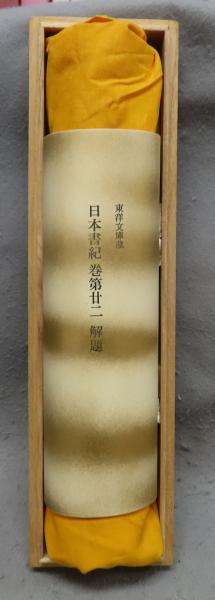 東洋文庫蔵
日本書紀 巻第廿二 解題